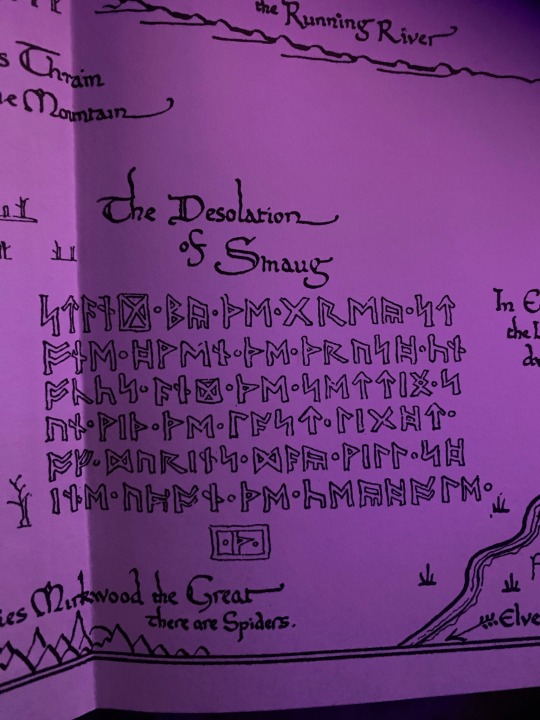 the Running River
s Thrain
he Mountain
The Desolation
of Smaug
ᛋᛏᚫᚾᛞ·ᛒᚣ·ᚦᛖ·ᚷᚱᛖᚣ·ᛋᛏ
ᚩᚾᛖ·ᚻᚹᛖᚾ·ᚦᛖ·ᚦᚱᚢᛋᚻ·ᚳᚾ
ᚩᚳᛋ·ᚫᚾᛞ·ᚦᛖ·ᛋᛖᛏᛏᛁᛝ·ᛋ
ᚢᚾ·ᚹᛁᚦ·ᚦᛖ·ᛚᚫᛋᛏ·ᛚᛁᚷᚻᛏ·
ᚩᚠ·ᛞᚢᚱᛁᚾᛋ·ᛞᚫᚣ·ᚹᛁᛚᛚ·ᛋᚻ
ᛁᚾᛖ·ᚢᛈᚩᚾ·ᚦᛖ·ᚳᛖᚣᚻᚩᛚᛖ·
·ᚦ·
In E
the L
ies Mirkwood the Great
there are Spiders.
Elve